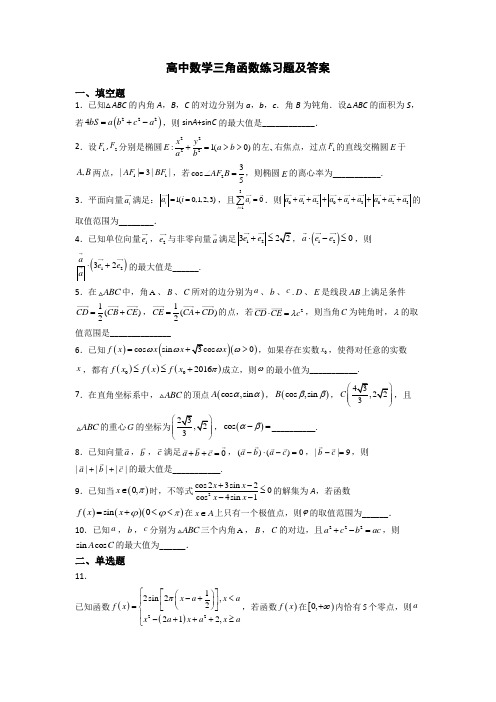 高中数学三角函数练习题及答案
一、填空题
1．已知△ABC 的内角 A，B，C 的对边分别为 a，b，c．角 B 为钝角．设△ABC 的面积为 S，
若 4bS = a(b² + c² − a²)，则 sinA+sinC 的最大值是____________．
2．设 F₁,F₂ 分别是椭圆 E: x²/a² + y²/b² = 1(a > b > 0) 的左、右焦点，过点 F₁ 的直线交椭圆 E 于
A,B 两点，| AF₁ |= 3 | BF₁ |，若 cos∠AF₂B = 3/5，则椭圆 E 的离心率为___________．
3．平面向量 aᵢ 满足：|aᵢ| = 1(i = 0,1,2,3)，且 aᵢ = 0．则 |a₀ + a₁ + a₂| + |a₀ + a₁ + a₃| + |a₀ + a₂ + a₃| 的
取值范围为________．
4．已知单位向量 e₁，e₂ 与非零向量 a 满足 |3e₁ + e₂| ≤ 2√2，a·(e₁ − e₂) ≤ 0，则
a/|a| ·(3e₁ + 2e₂) 的最大值是______．
5．在△ABC 中，角 A、B、C 所对的边分别为 a、b、c．D、E 是线段 AB 上满足条件
CD = 1/2(CB + CE)，CE = 1/2(CA + CD) 的点，若 CD·CE = λc²，则当角 C 为钝角时，λ 的取
值范围是______________
6．已知 f(x) = cos ωx(sin ωx + √3 cos ωx)(ω > 0)，如果存在实数 x₀，使得对任意的实数
x，都有 f(x₀) ≤ f(x) ≤ f(x₀ + 2016π) 成立，则 ω 的最小值为___________．
7．在直角坐标系中，△ABC 的顶点 A(cos α,sin α)，B(cos β,sin β)，C(4√3/3, 2√2)，且
△ABC 的重心 G 的坐标为 (2√3/3, √2)，cos(α − β) = __________．
8．已知向量 a，b，c 满足 a + b + c = 0，(a − b)·(a − c) = 0，| b − c |= 9，则
| a | + | b | + | c | 的最大值是___________．
9．已知当 x∈(0,π) 时，不等式 (cos 2x + 3sin x − 2)/(cos² x − 4sin x − 1) ≤ 0 的解集为 A，若函数
f(x) = sin(x + φ)(0 < φ < π) 在 x∈A 上只有一个极值点，则 φ 的取值范围为______．
10．已知 a，b，c 分别为△ABC 三个内角 A，B，C 的对边，且 a² + c² − b² = ac，则
sin A cos C 的最大值为______．
二、单选题
11．
已知函数 f(x) = { 2sin[2π(x − a + 1/2)], x < a
x² − (2a + 1)x + a² + 2, x ≥ a ，若函数 f(x) 在 [0,+∞) 内恰有 5 个零点，则 a